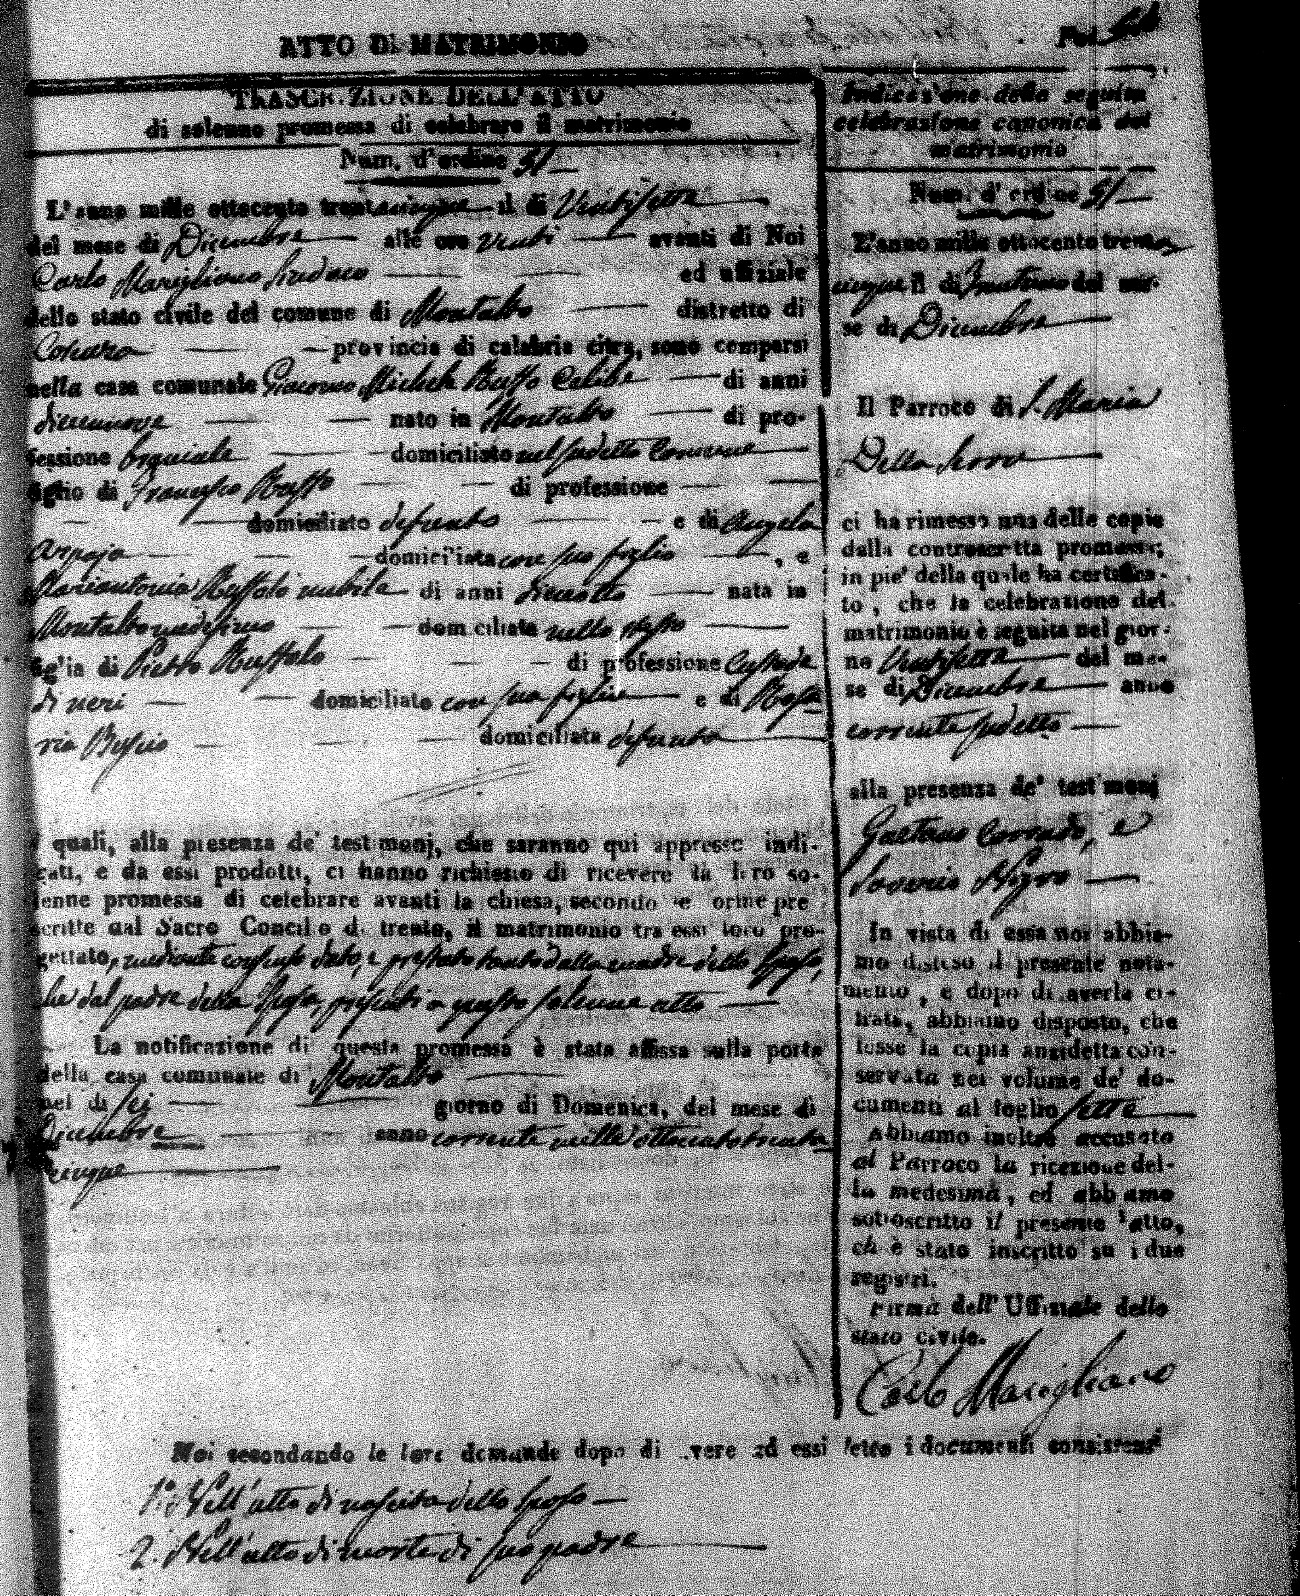 ATTO DI MATRIMONIO
TRASCRIZIONE DELL' ATTO
di solenne promessa di celebrare il matrimonio
Num. d'ordine 51
L'anno mille ottocento trentacinque il di Ventisette
del mese di Dicembre alle ore venti avanti di Noi
Carlo Marigliano Sindaco ed uffiziale
dello stato civile del comune di Montalto distretto di
Cosenza provincia di calabria citra, sono comparsi
nella casa comunale Giacomo Michele Ruffo Celibe di anni
diecinnove nato in Montalto di pro-
fessione domiciliato nel sudetto Comune
figlio di Francesco Ruffo di professione
domiciliato defunto e di Angela
domiciliata con suo figlio , e
Mariantonia Ruffolo nubile di anni dieciotto nata in
Montalto domiciliata nello stesso
figlia di Pietro Ruffolo di professione Custode
di neri domiciliato con sua figlia e di Rosa
ria domiciliata defunta
i quali, alla presenza de' testimonj, che saranno qui appresso indi-
cati, e da essi prodotti, ci hanno richiesto di ricevere la loro so-
lenne promessa di celebrare avanti la chiesa, secondo le forme pre
scritte dal Sacro Concilio di trento, il matrimonio tra essi loro pro-
gettato, mediante consenso dato, e prestato tanto dalla madre dello Sposo,
che dal padre della Sposa, presenti a questo solenne atto
La notificazione di questa promessa è stata affissa sulla porta
della casa comunale di Montalto
nel di sei giorno di Domenica, del mese di
Dicembre anno corrente mille ottocento trenta
cinque
Fol
Indicazione della seguita
celebrazione canonica del
matrimonio
Num. d' ordine 51
L'anno mille ottocento trenta
cinque il di trentuno del me-
se di Dicembre
Il Parroco di S. Maria
Della Serra
ci ha rimesso una delle copie
dalla controscritta promessa;
in pie' della quale ha certifica-
to, che la celebrazione del
matrimonio è seguita nel gior-
no Ventisette del me-
se di Dicembre anno
corrente sudetto
alla presenza de' testimonj
Gaetano Corrado, e
Saverio Nigro
In vista di essa noi abbia-
mo disteso il presente nota-
mento, e dopo di averla ci-
frata, abbiamo disposto, che
fosse la copia anzidetta con-
servata nel volume de' do-
cumenti al foglio sette
Abbiamo inoltre accusato
al Parroco la ricezione del-
la medesima, ed abbiamo
sottoscritto il presente atto,
ch è stato inscritto su i due
registri.
Firma dell' Uffiziale dello
stato civile.
Carlo Marigliano
Noi secondando le loro demande dopo di avere ad essi letto i documenti consistenti
1.° Nell'atto di nascita dello sposo
2. Nell'atto di morte di suo padre